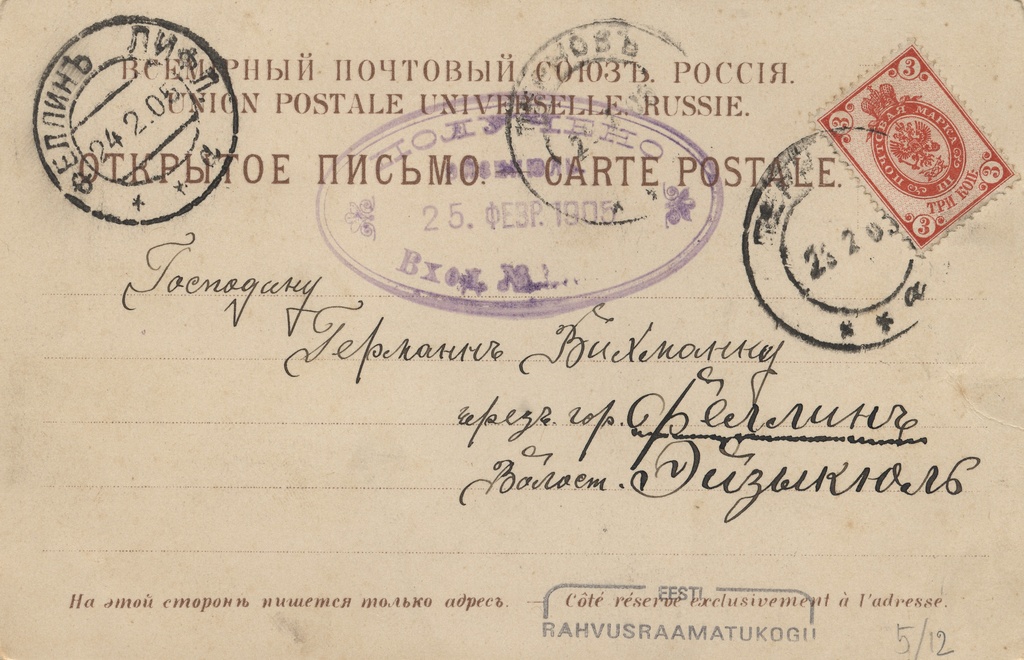 ВСЕМІРНЫЙ ПОЧТОВЫЙ СОЮЗЪ. РОССІЯ.
UNION POSTALE UNIVERSELLE. RUSSIE.
ОТКРЫТОЕ ПИСЬМО. CARTE POSTALE.
ФЕЛЛИНЪ ЛИФЛ.
24 2.05
а
ПОЛУЧЕНО
25. ФЕВР. 1905
Вход. №
3 3 3 3
ПОЧТОВАЯ МАРКА
ТРИ КОП.
23 2 05
а
Господину
Германнъ Вихманну
чрезъ гор. Феллинъ
Волост. Эйзыкюль
На этой сторонѣ пишется только адресъ. — Côté réservé exclusivement à l'adresse.
EESTI
RAHVUSRAAMATUKOGU
5/12